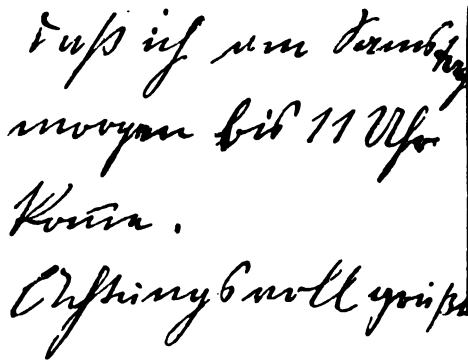 daß ich am Samstag
morgen bis 11 Uhr
kom̅e.
Achtungsvoll grüßt